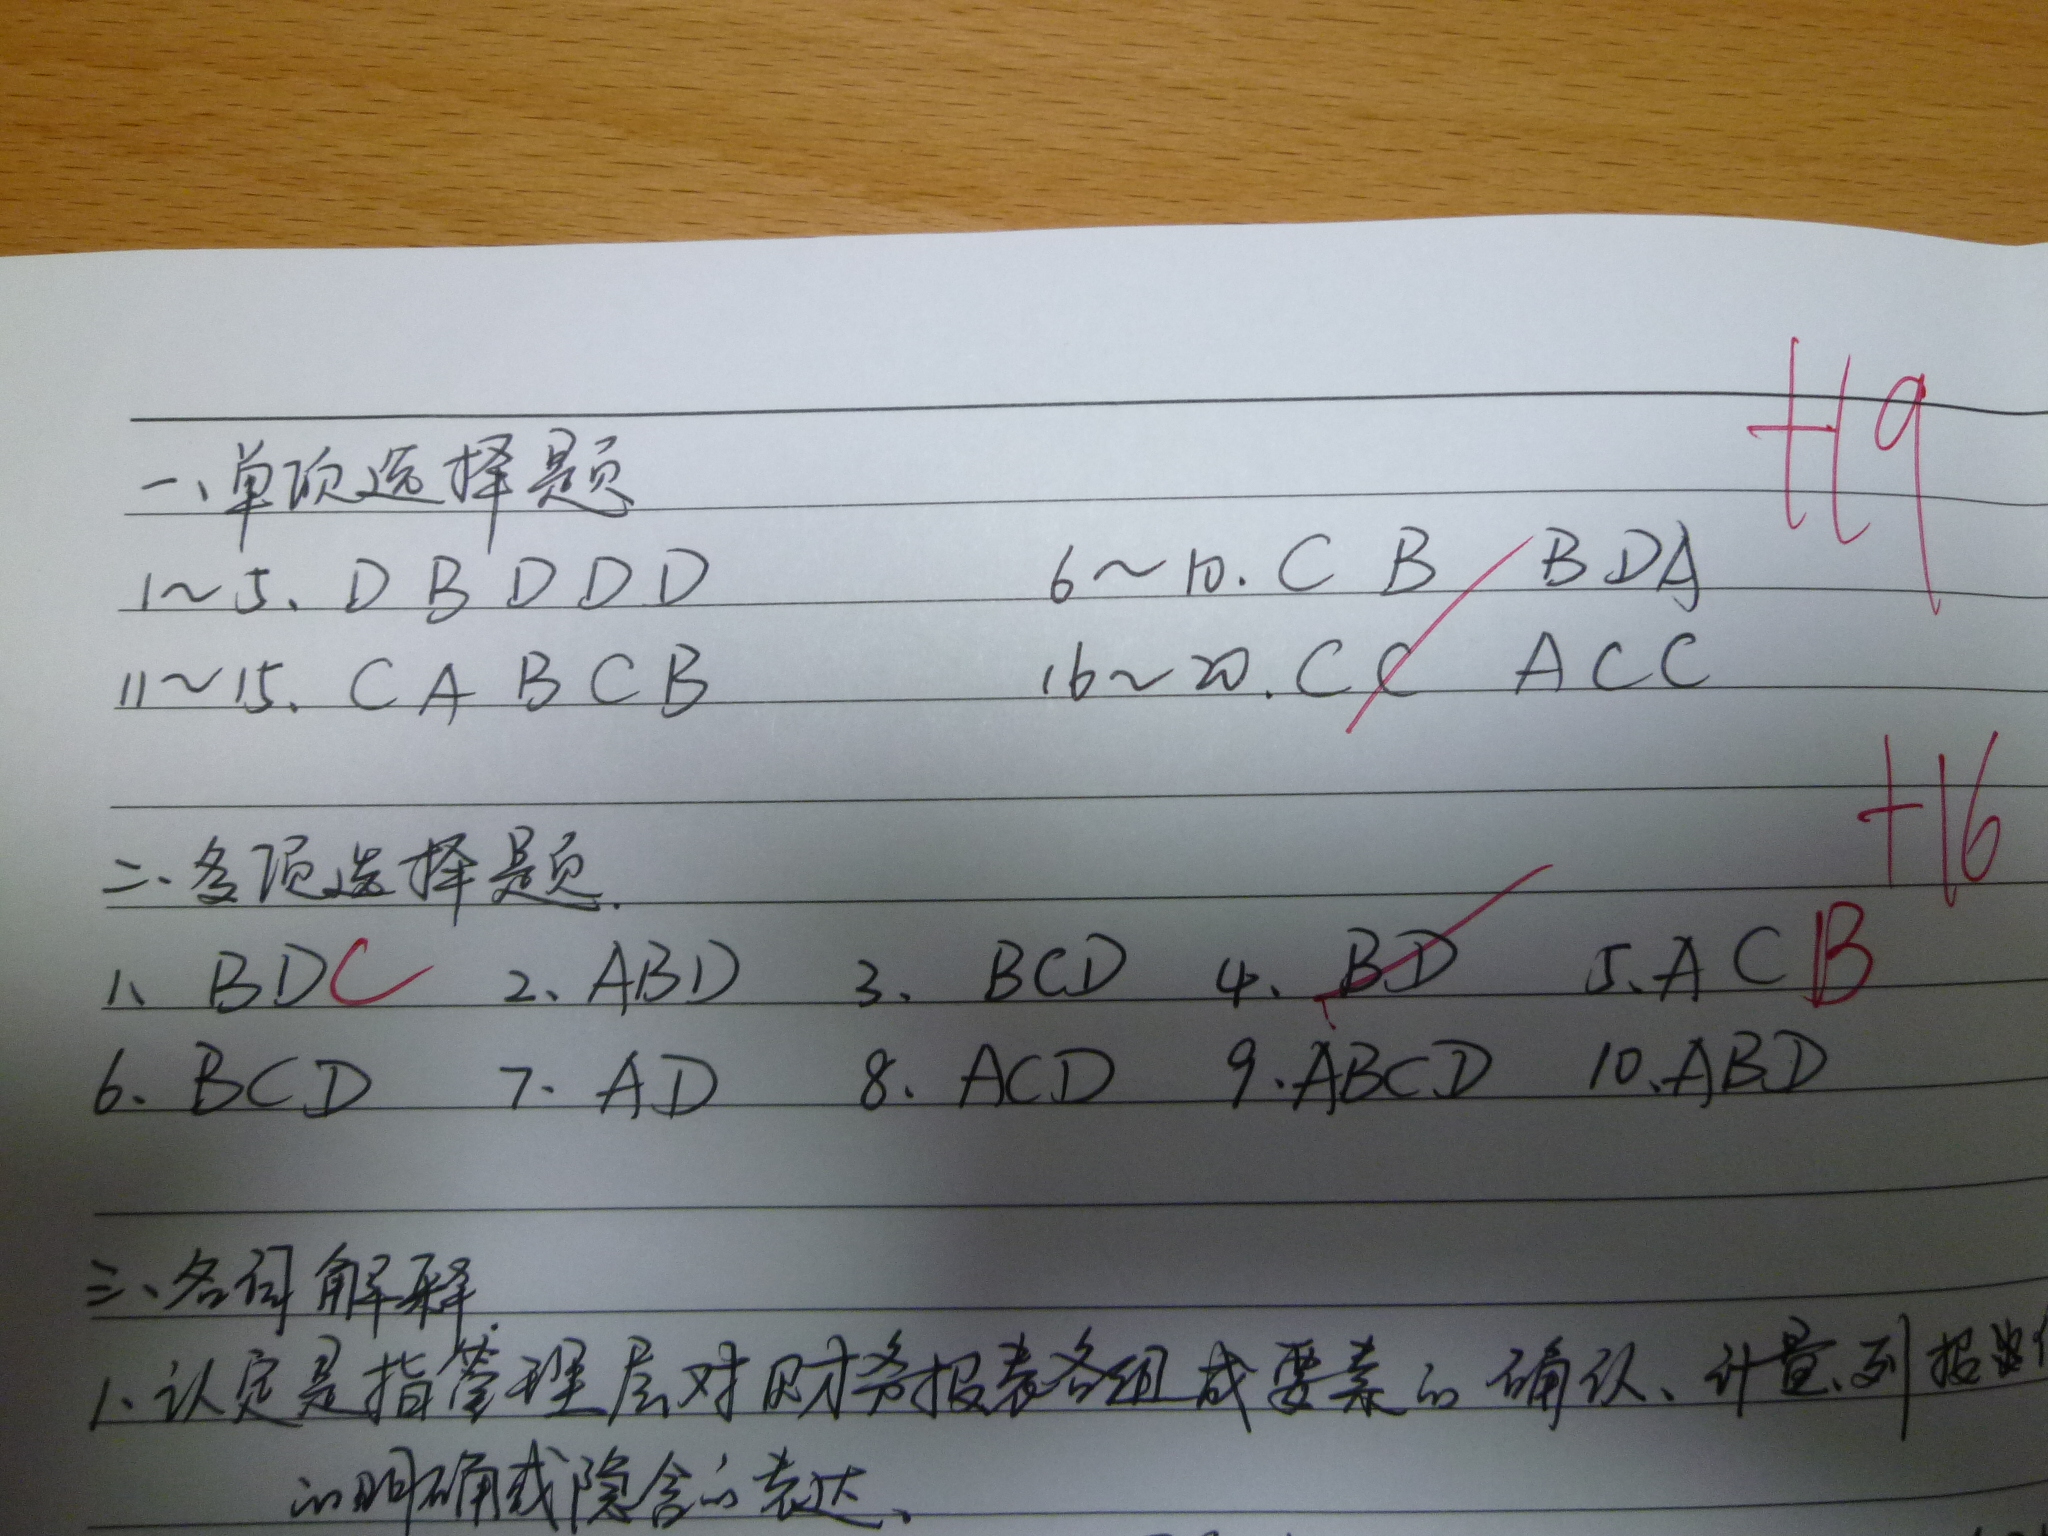 +19
一、单项选择题
1~5. D B D D D 6~10. C B B D A
11~15. C A B C B 16~20. C C A C C
+16
二、多项选择题.
1、BDC 2、ABD 3、BCD 4、BD 5、ACB
6、BCD 7、AD 8、ACD 9、ABCD 10、ABD
三、名词解释.
1、认定是指管理层对财务报表各组成要素的确认、计量、列报
的明确或隐含的表达、